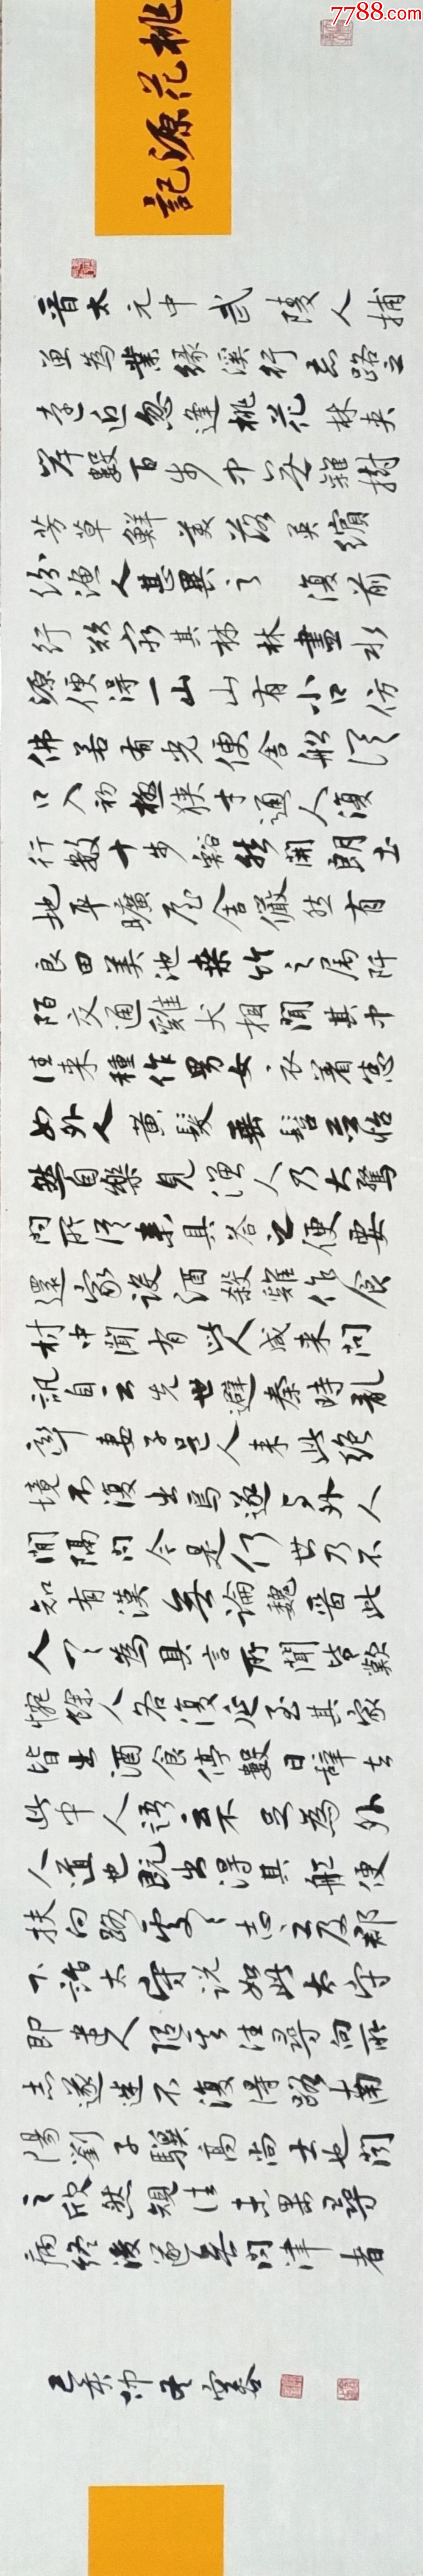 7788.com
桃花源記
晉太元中武陵人捕
魚為業緣溪行忘路之
遠近忽逢桃花林夾
岸數百步中無雜樹
芳草鮮美落英繽
紛漁人甚異之復前
行欲窮其林林盡水
源便得一山山有小口仿
佛若有光便舍船從
口入初極狹才通人復
行數十步豁然開朗土
地平曠屋舍儼然有
良田美池桑竹之属阡
陌交通雞犬相聞其中
往来種作男女衣着悉
如外人黃髮垂髫並怡
然自樂見漁人乃大驚
問所從来具答之便要
還家設酒殺雞作食
村中聞有此人咸来問
訊自云先世避秦時亂
率妻子邑人来此絕
境不復出焉遂与外人
間隔問今是何世乃不
知有漢無論魏晉此
人一一為具言所聞皆歎
惋餘人各復延至其家
皆出酒食停數日辭去
此中人語云不足為外
人道也既出得其船便
扶向路處々志之及郡
下詣太守說如此太守
即遣人隨其往尋向所
志遂迷不復得路南
陽劉子驥高尚士也聞
之欣然規往未果尋
病終後遂無問津者
己亥